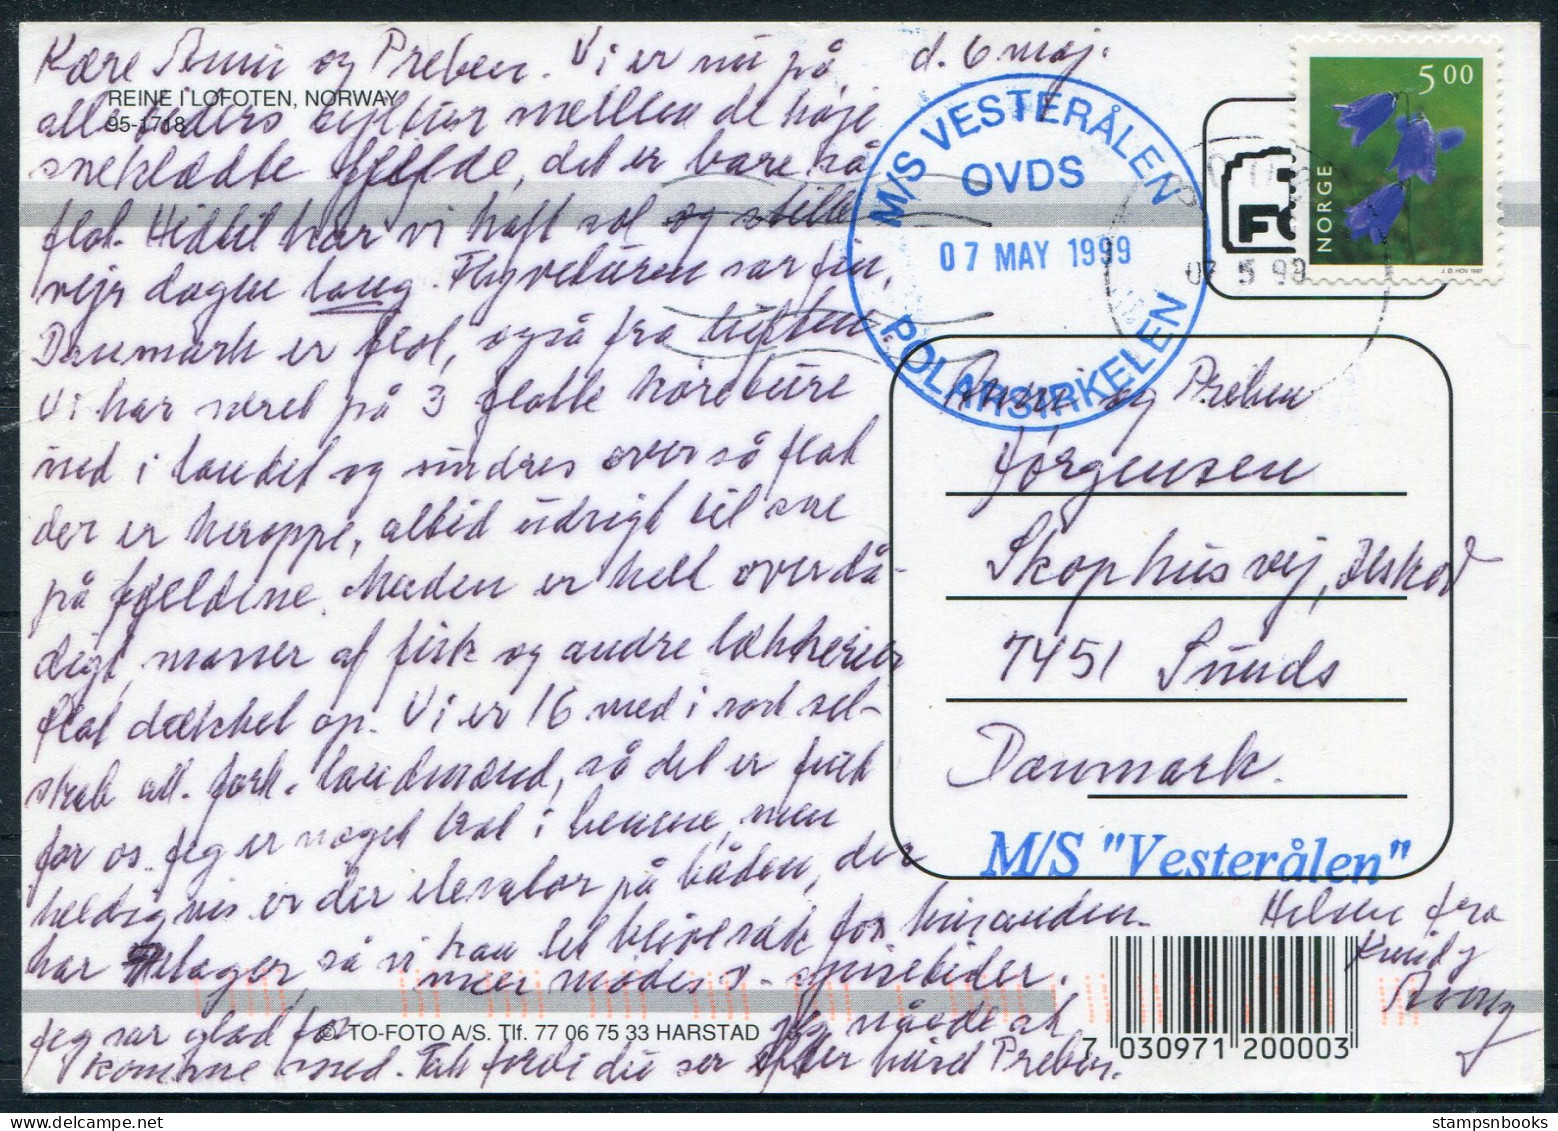 d. 6 maj.
Kære Anni og Preben. Vi er nu på
REINE I LOFOTEN, NORWAY
95-1718
mellem de høje
sneklædte fjelde, det er bare så
flot. Hidtil har vi haft sol og stille
vejr dagen lang. Flyveturen var fin,
Danmark er flot, også fra luften
Vi har været på 3 flotte køreture
ind i landet og undres over så flot
der er heroppe, altid udsigt til sne
på fjeldene. Maden er helt overdå-
digt, masser af fisk og andre lækkerier
flot dækket op. Vi er 16 med i vort sel-
skab alt. fork. landmænd, så det er fint
for os. Jeg er noget træt i benene, men
heldigvis er der elevator på båden, der
har etager, så vi kan let blive væk for hinanden.
men mødes v. spisetider.
Jeg var glad for jeg nåede at
© TO-FOTO A/S. Tlf. 77 06 75 33 HARSTAD
komme med. Tak fordi du ser efter Preben.
M/S VESTERÅLEN
OVDS
07 MAY 1999
POLARSIRKELEN
07 5 99
5 00
NORGE
Anni og Preben
Jørgensen
Skophusvej, Ilskov
7451 Sunds
Danmark.
M/S "Vesterålen"
Hilsen fra
Knud &
7 030971 200003
stampsnbooks